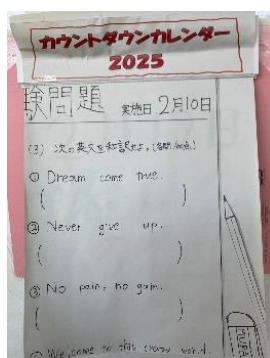 カウントダウンカレンダー
2025
験問題 実施日 2月10日
(3) 次の英文を和訳せよ。
① Dream come true.
( )
② Never give up.
( )
③ No pain, no gain.
( )
come to this crazy